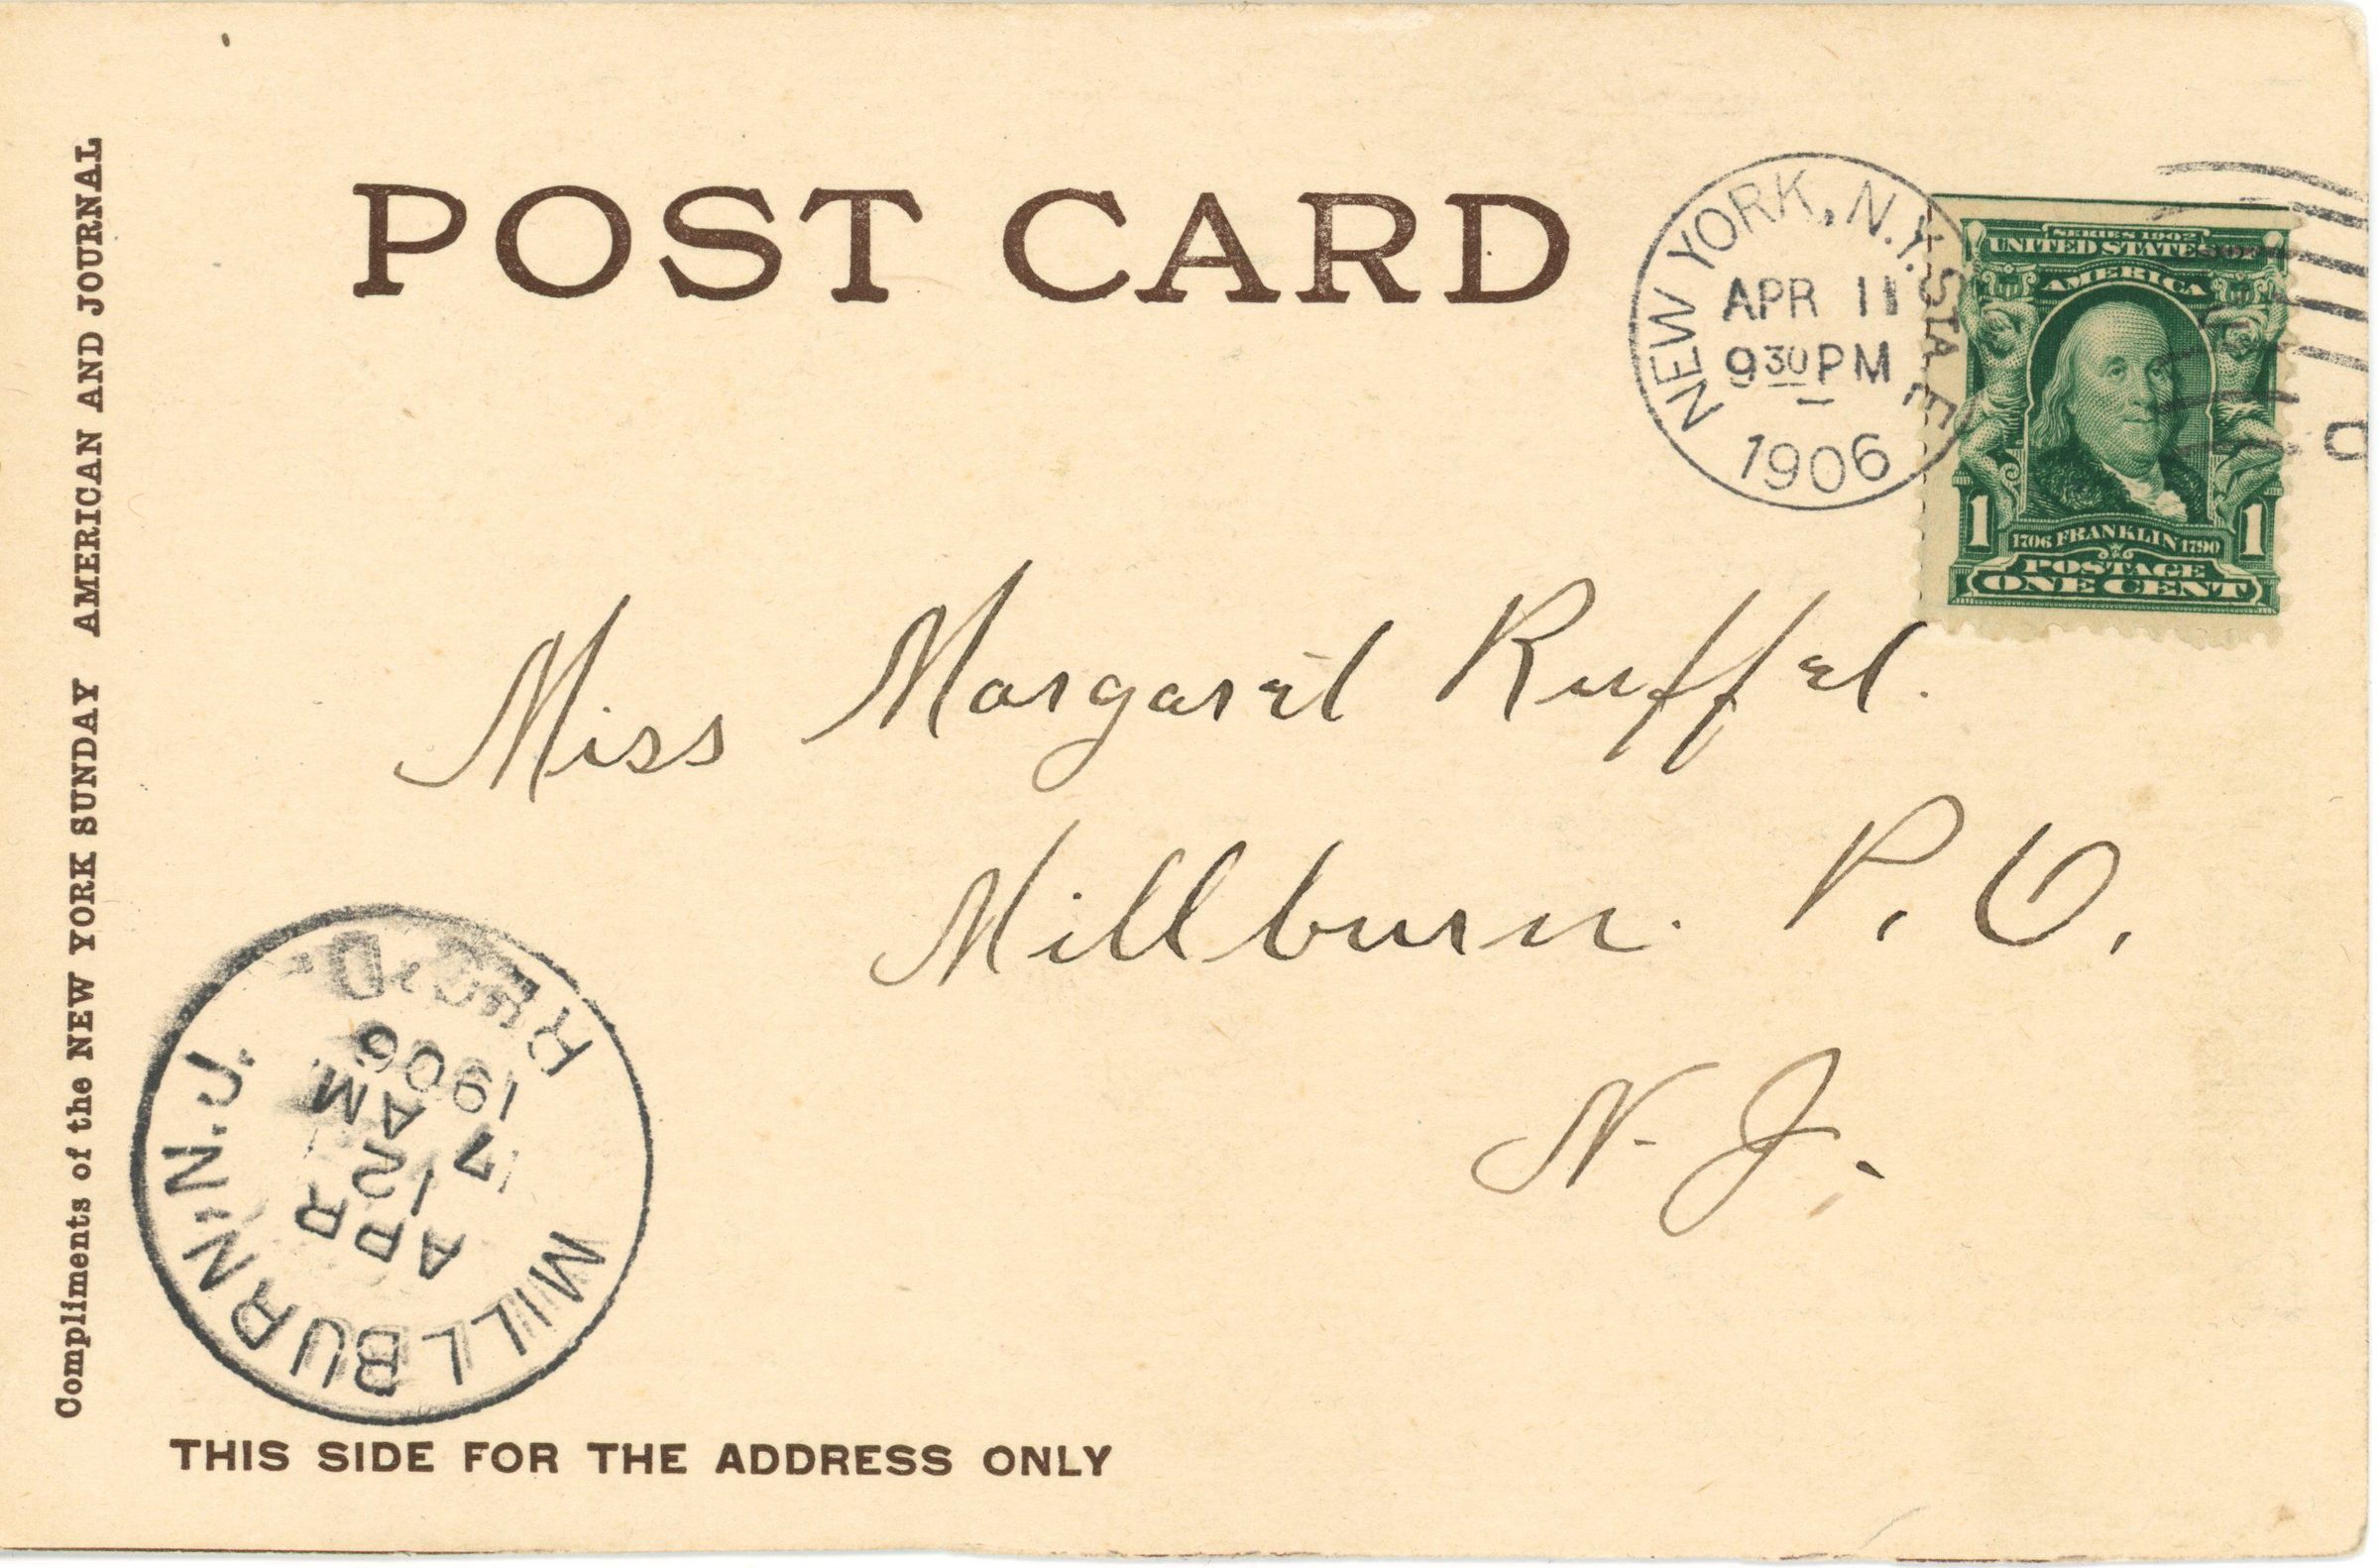 Compliments of the NEW YORK SUNDAY AMERICAN AND JOURNAL
POST CARD
NEW YORK, N.Y. STA. E
APR 11
9 30 PM
1906
SERIES 1902
UNITED STATES OF
AMERICA
1706 FRANKLIN 1790
1 1
POSTAGE
ONE CENT
Miss Margaret Ruffel.
Millburn. P. O.
N. J.
MILLBURN. N.J.
APR
12
7 AM
1906
REC'D.
THIS SIDE FOR THE ADDRESS ONLY